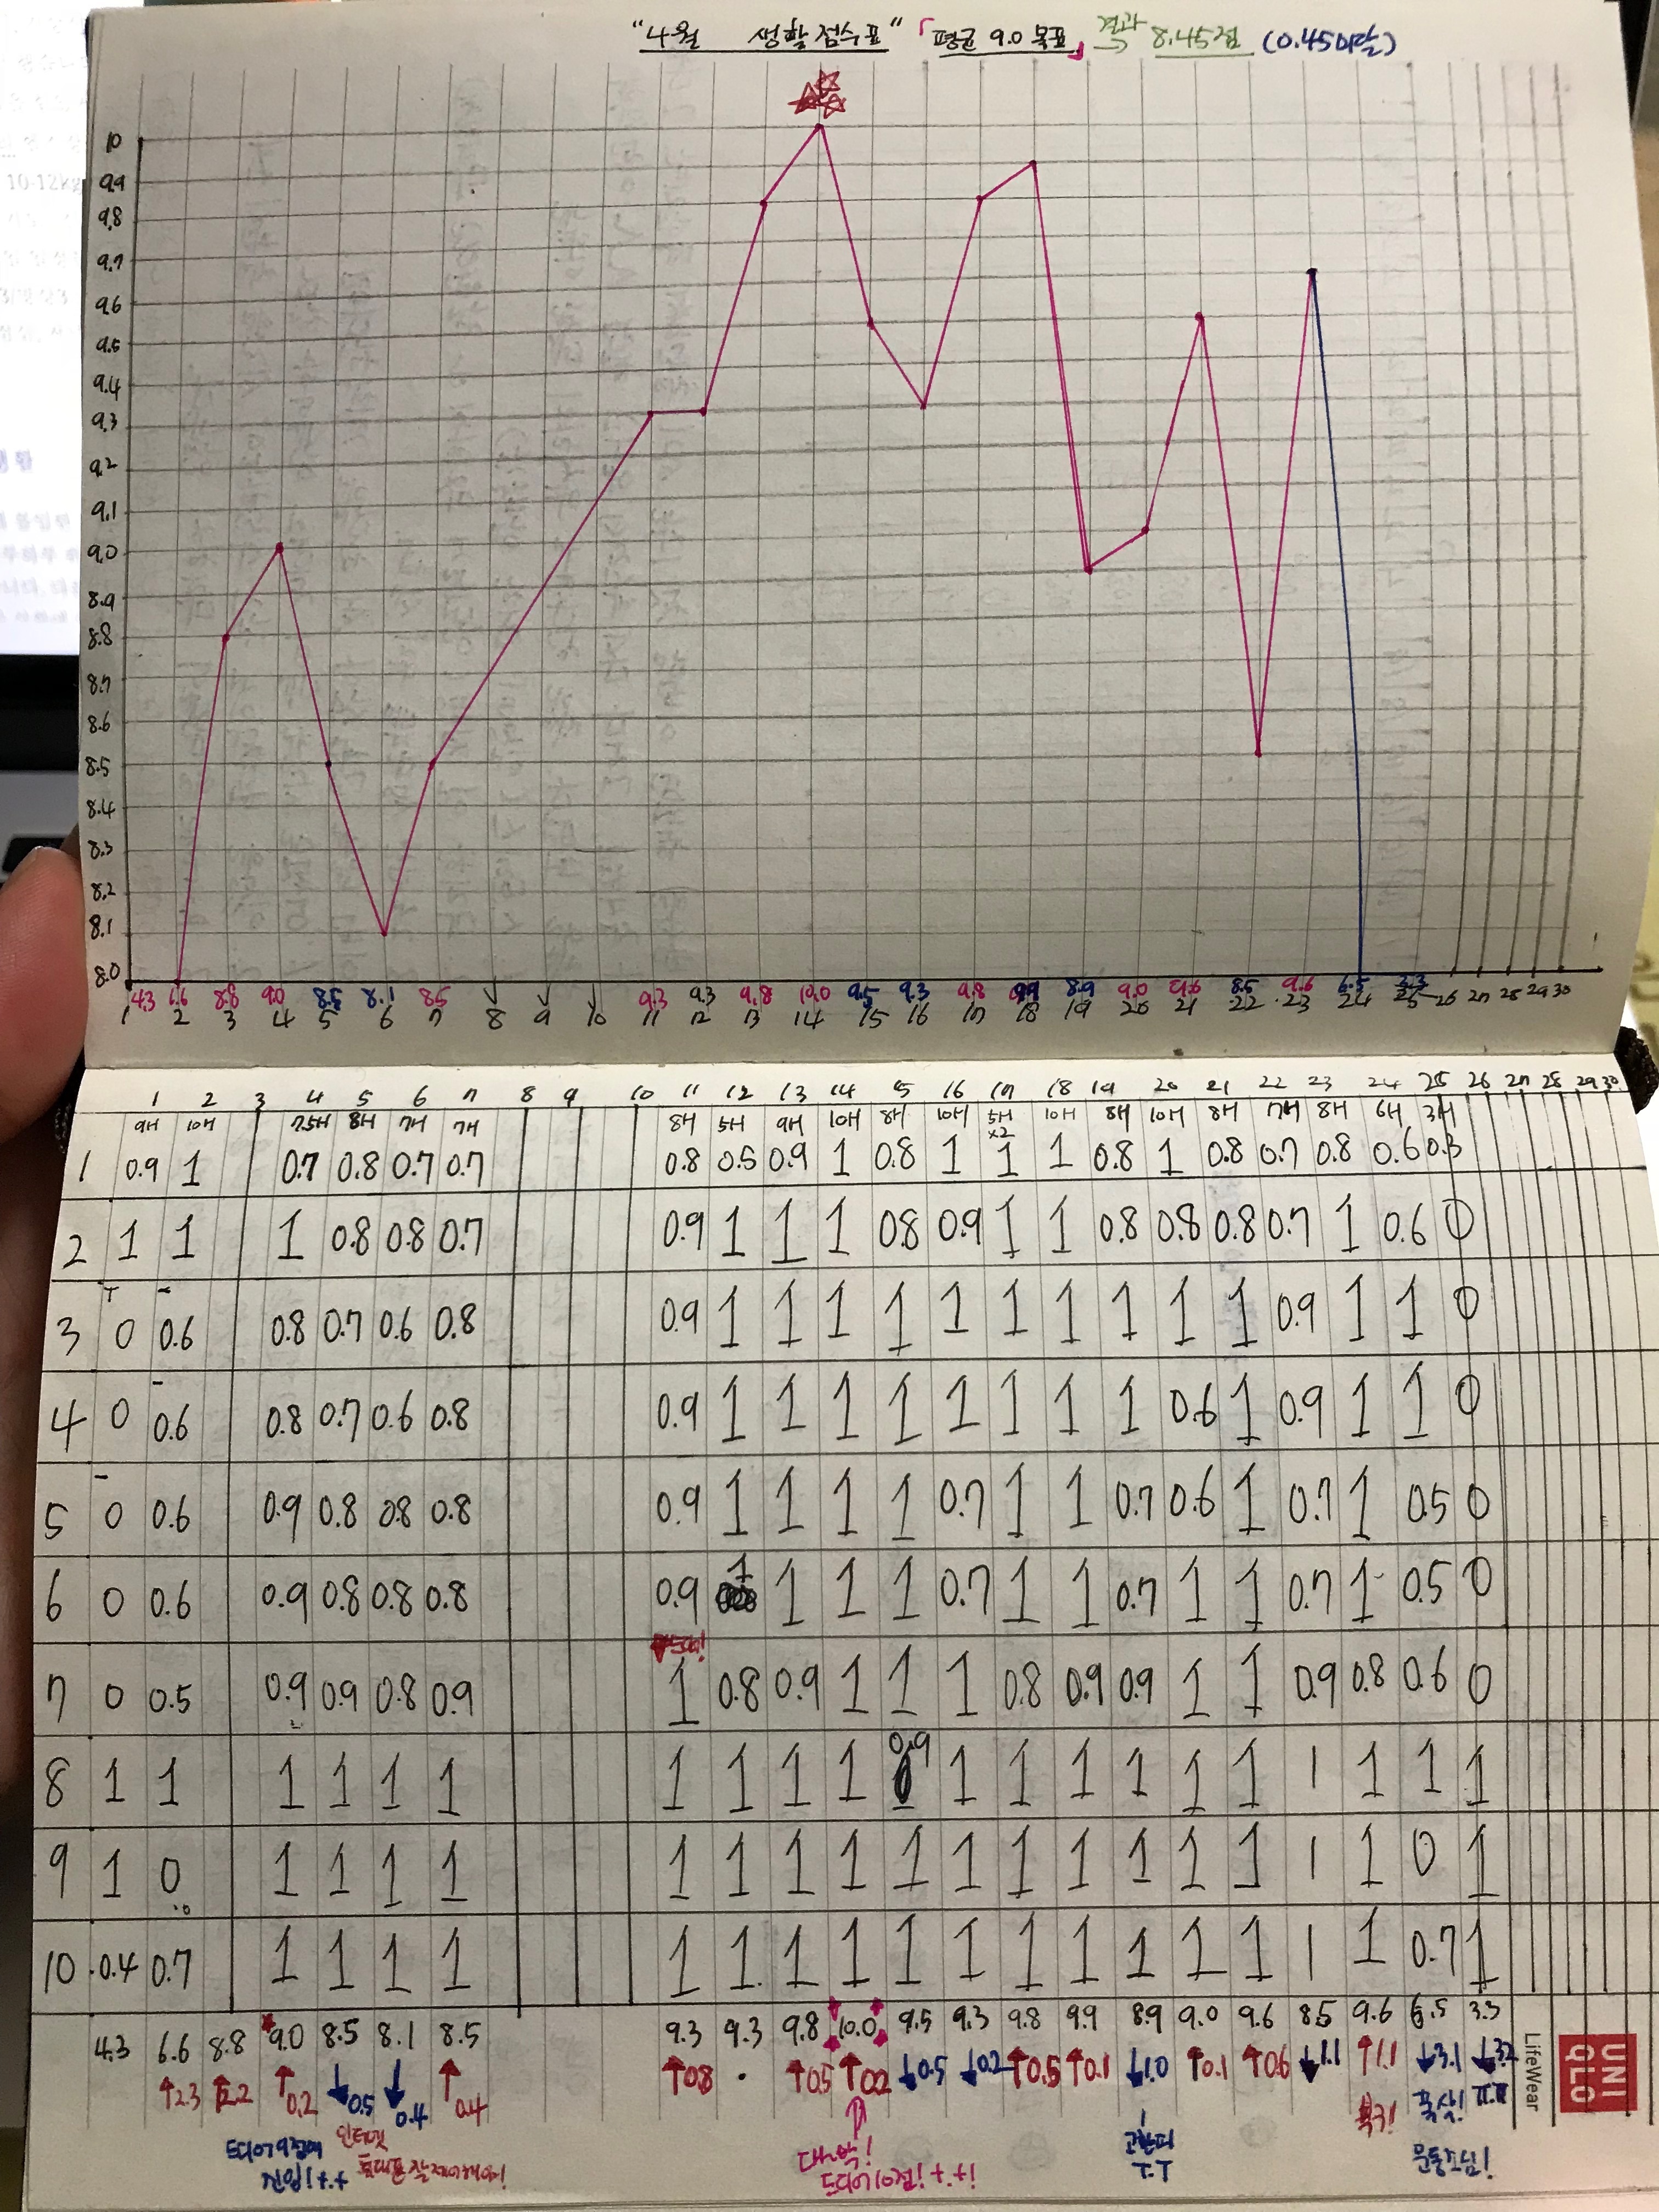 "4월 생활점수표" 「평균 9.0 목표」 결과 8.45점 (0.45미달)
10
9.9
9.8
9.7
9.6
9.5
9.4
9.3
9.2
9.1
9.0
8.9
8.8
8.7
8.6
8.5
8.4
8.3
8.2
8.1
8.0
4.3 6.6 8.8 9.0 8.5 8.1 8.5 9.3 9.3 9.8 10.0 9.5 9.3 9.8 9.9 8.9 9.0 9.6 8.5 9.6 6.5 3.3
1 2 3 4 5 6 7 8 9 10 11 12 13 14 15 16 17 18 19 20 21 22 23 24 25 26 27 28 29 30
1 2 3 4 5 6 7 8 9 10 11 12 13 14 15 16 17 18 19 20 21 22 23 24 25 26 27 28 29 30
9H 10H 7.5H 8H 7H 7H 8H 5H 9H 10H 8H 10H 5H x2 10H 8H 10H 8H 7H 8H 6H 3H
1 0.9 1 0.7 0.8 0.7 0.7 0.8 0.5 0.9 1 0.8 1 1 1 0.8 1 0.8 0.7 0.8 0.6 0.3
2 1 1 1 0.8 0.8 0.7 0.9 1 1 1 0.8 0.9 1 1 0.8 0.8 0.8 0.7 1 0.6 0
3 0 0.6 0.8 0.7 0.6 0.8 0.9 1 1 1 1 1 1 1 1 1 1 0.9 1 1 0
4 0 0.6 0.8 0.7 0.6 0.8 0.9 1 1 1 1 1 1 1 1 0.6 1 0.9 1 1 0
5 0 0.6 0.9 0.8 0.8 0.8 0.9 1 1 1 1 0.7 1 1 0.7 0.6 1 0.7 1 0.5 0
6 0 0.6 0.9 0.8 0.8 0.8 0.9 1 1 1 1 0.7 1 1 0.7 1 1 0.7 1 0.5 0
7 0 0.5 0.9 0.9 0.8 0.9 1 0.8 0.9 1 1 1 0.8 0.9 0.9 1 1 0.9 0.8 0.6 0
8 1 1 1 1 1 1 1 1 1 1 0.9 1 1 1 1 1 1 1 1 1 1
9 1 0 1 1 1 1 1 1 1 1 1 1 1 1 1 1 1 1 1 0 1
10 0.4 0.7 1 1 1 1 1 1 1 1 1 1 1 1 1 1 1 1 1 0.7 1
4.3 6.6 8.8 9.0 8.5 8.1 8.5 9.3 9.3 9.8 10.0 9.5 9.3 9.8 9.9 8.9 9.0 9.6 8.5 9.6 6.5 3.3
↑2.3 ↑2.2 ↑0.2 ↓0.5 ↓0.4 ↑0.4 ↑0.8 · ↑0.5 ↑0.2 ↓0.5 ↓0.2 ↑0.5 ↑0.1 ↓1.0 ↑0.1 ↑0.6 ↓1.1 ↑1.1 ↓3.1 ↓3.2
드디어 9점에
진입!+.+
인터넷
대박!
드디어 10점!+.+!
T.T
복귀!
폭삭!
LifeWear
UNI
QLO